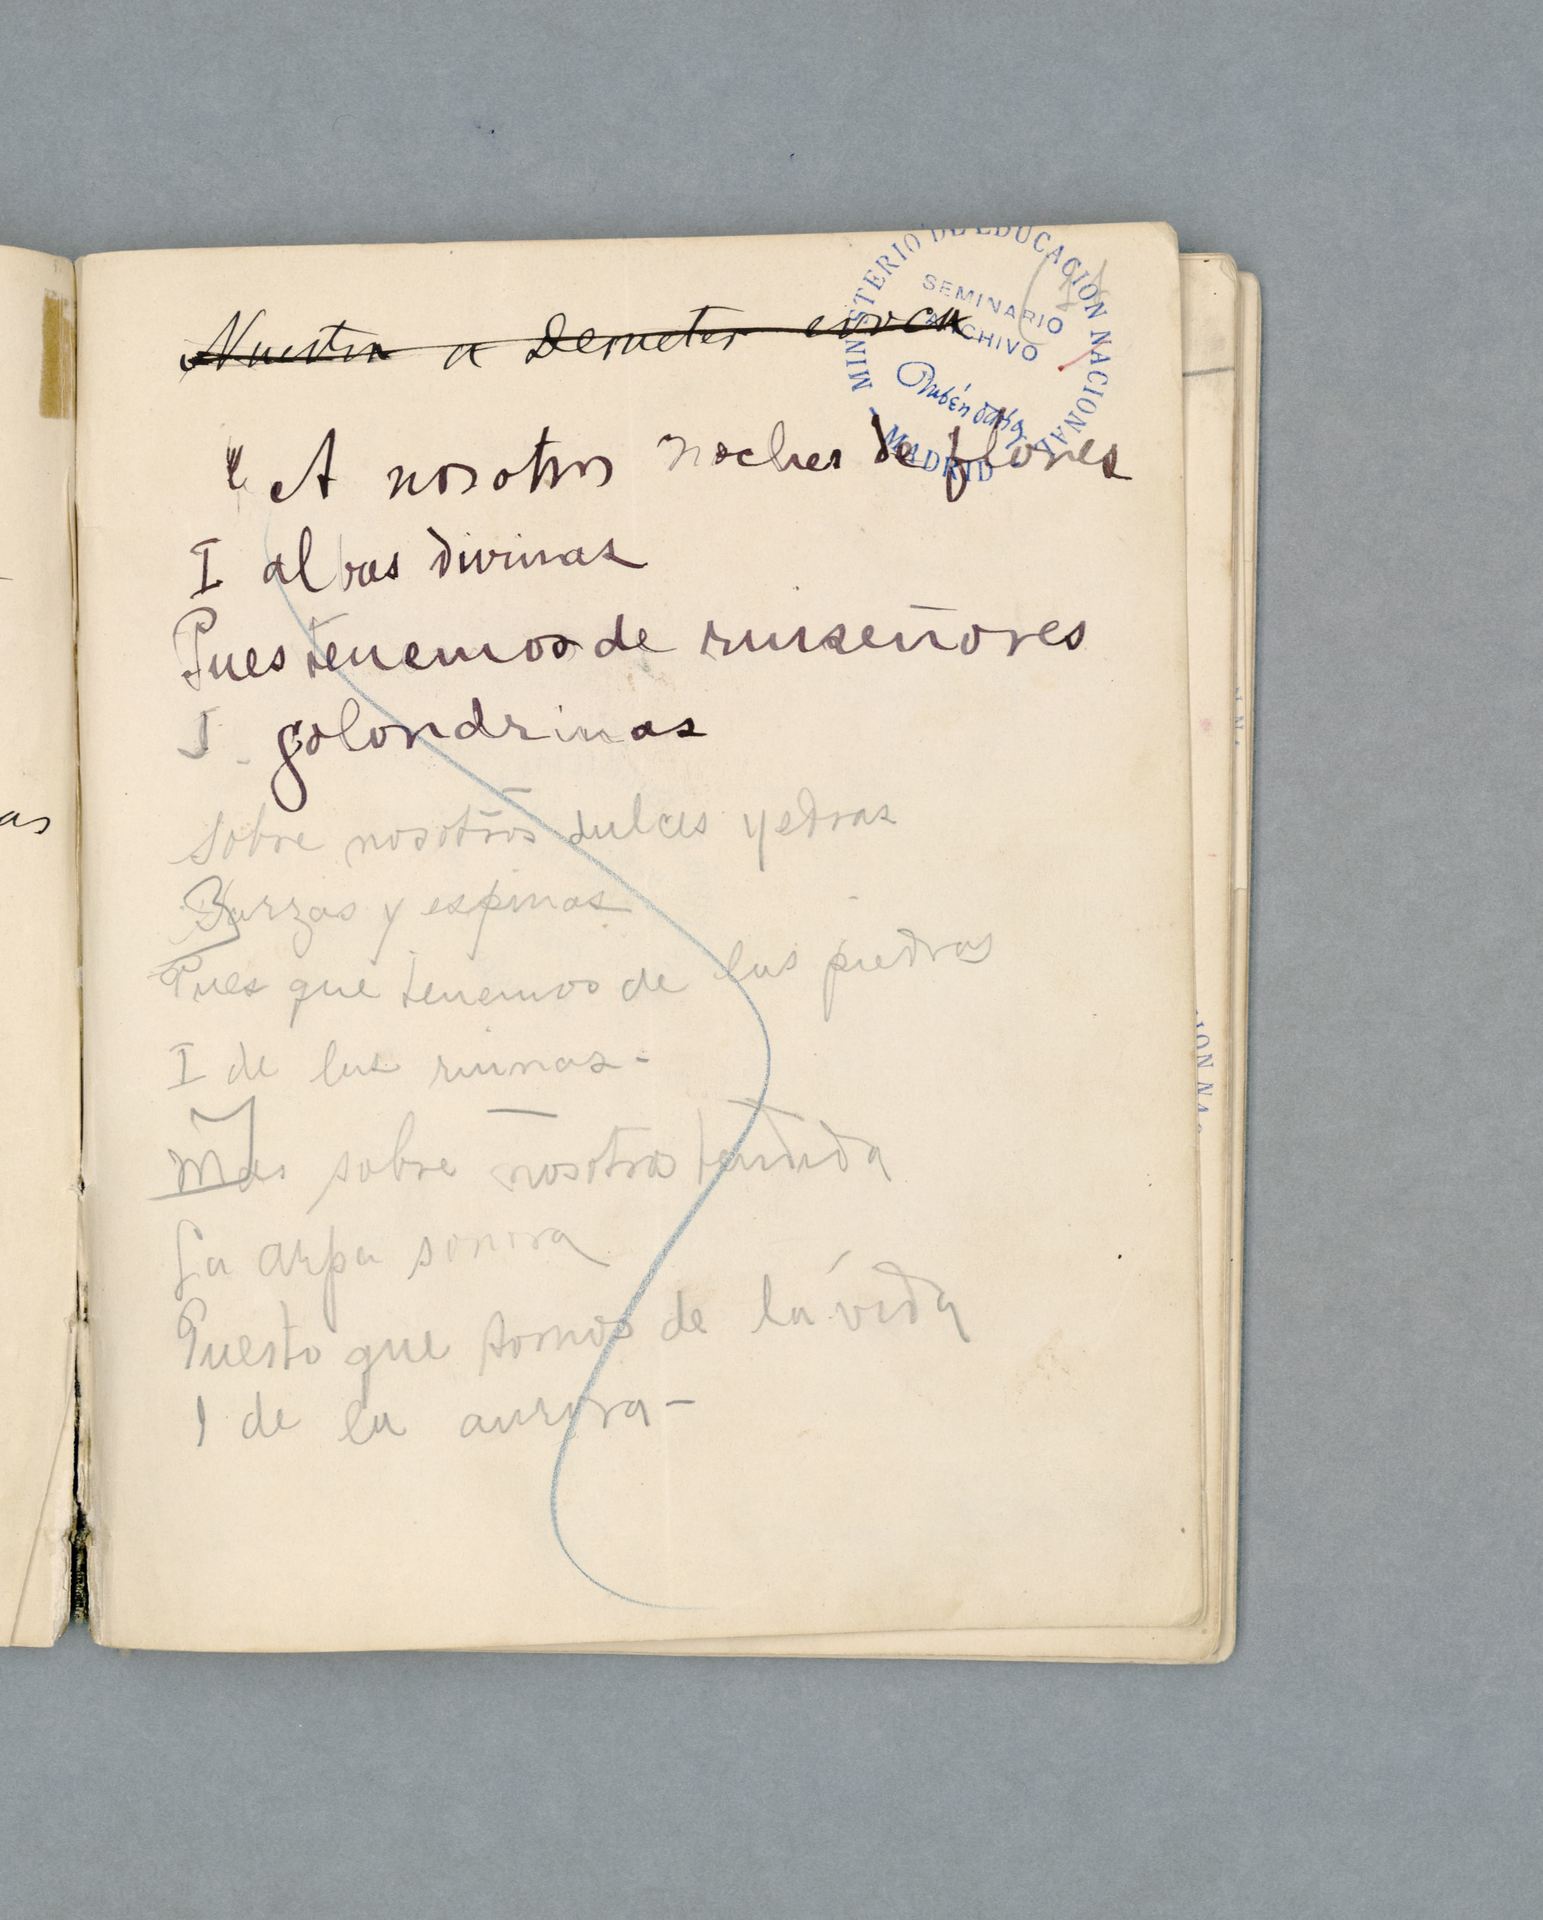 MINISTERIO DE EDUCACION NACIONAL
SEMINARIO
ARCHIVO
Rubén Darío
- MADRID -
Nuestra a Demeter evoca
" A nosotros noches de flores
I albas divinas
Pues tenemos de ruiseñores
I golondrinas
Sobre nosotros dulces yedras
Zarzas y espinas
Pues que tenemos de las piedras
I de las ruinas -
Mas sobre nosotros tendida
La arpa sonora
Puesto que somos de la vida
I de la aurora -
as
ION NA